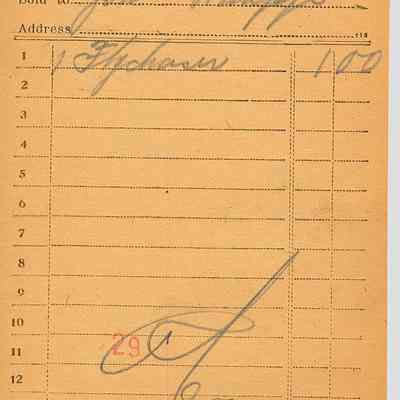 Sold to
Address
1 1 Flychaser 1 00
2
3
4
5
6
7
8
9
10
29
11
12